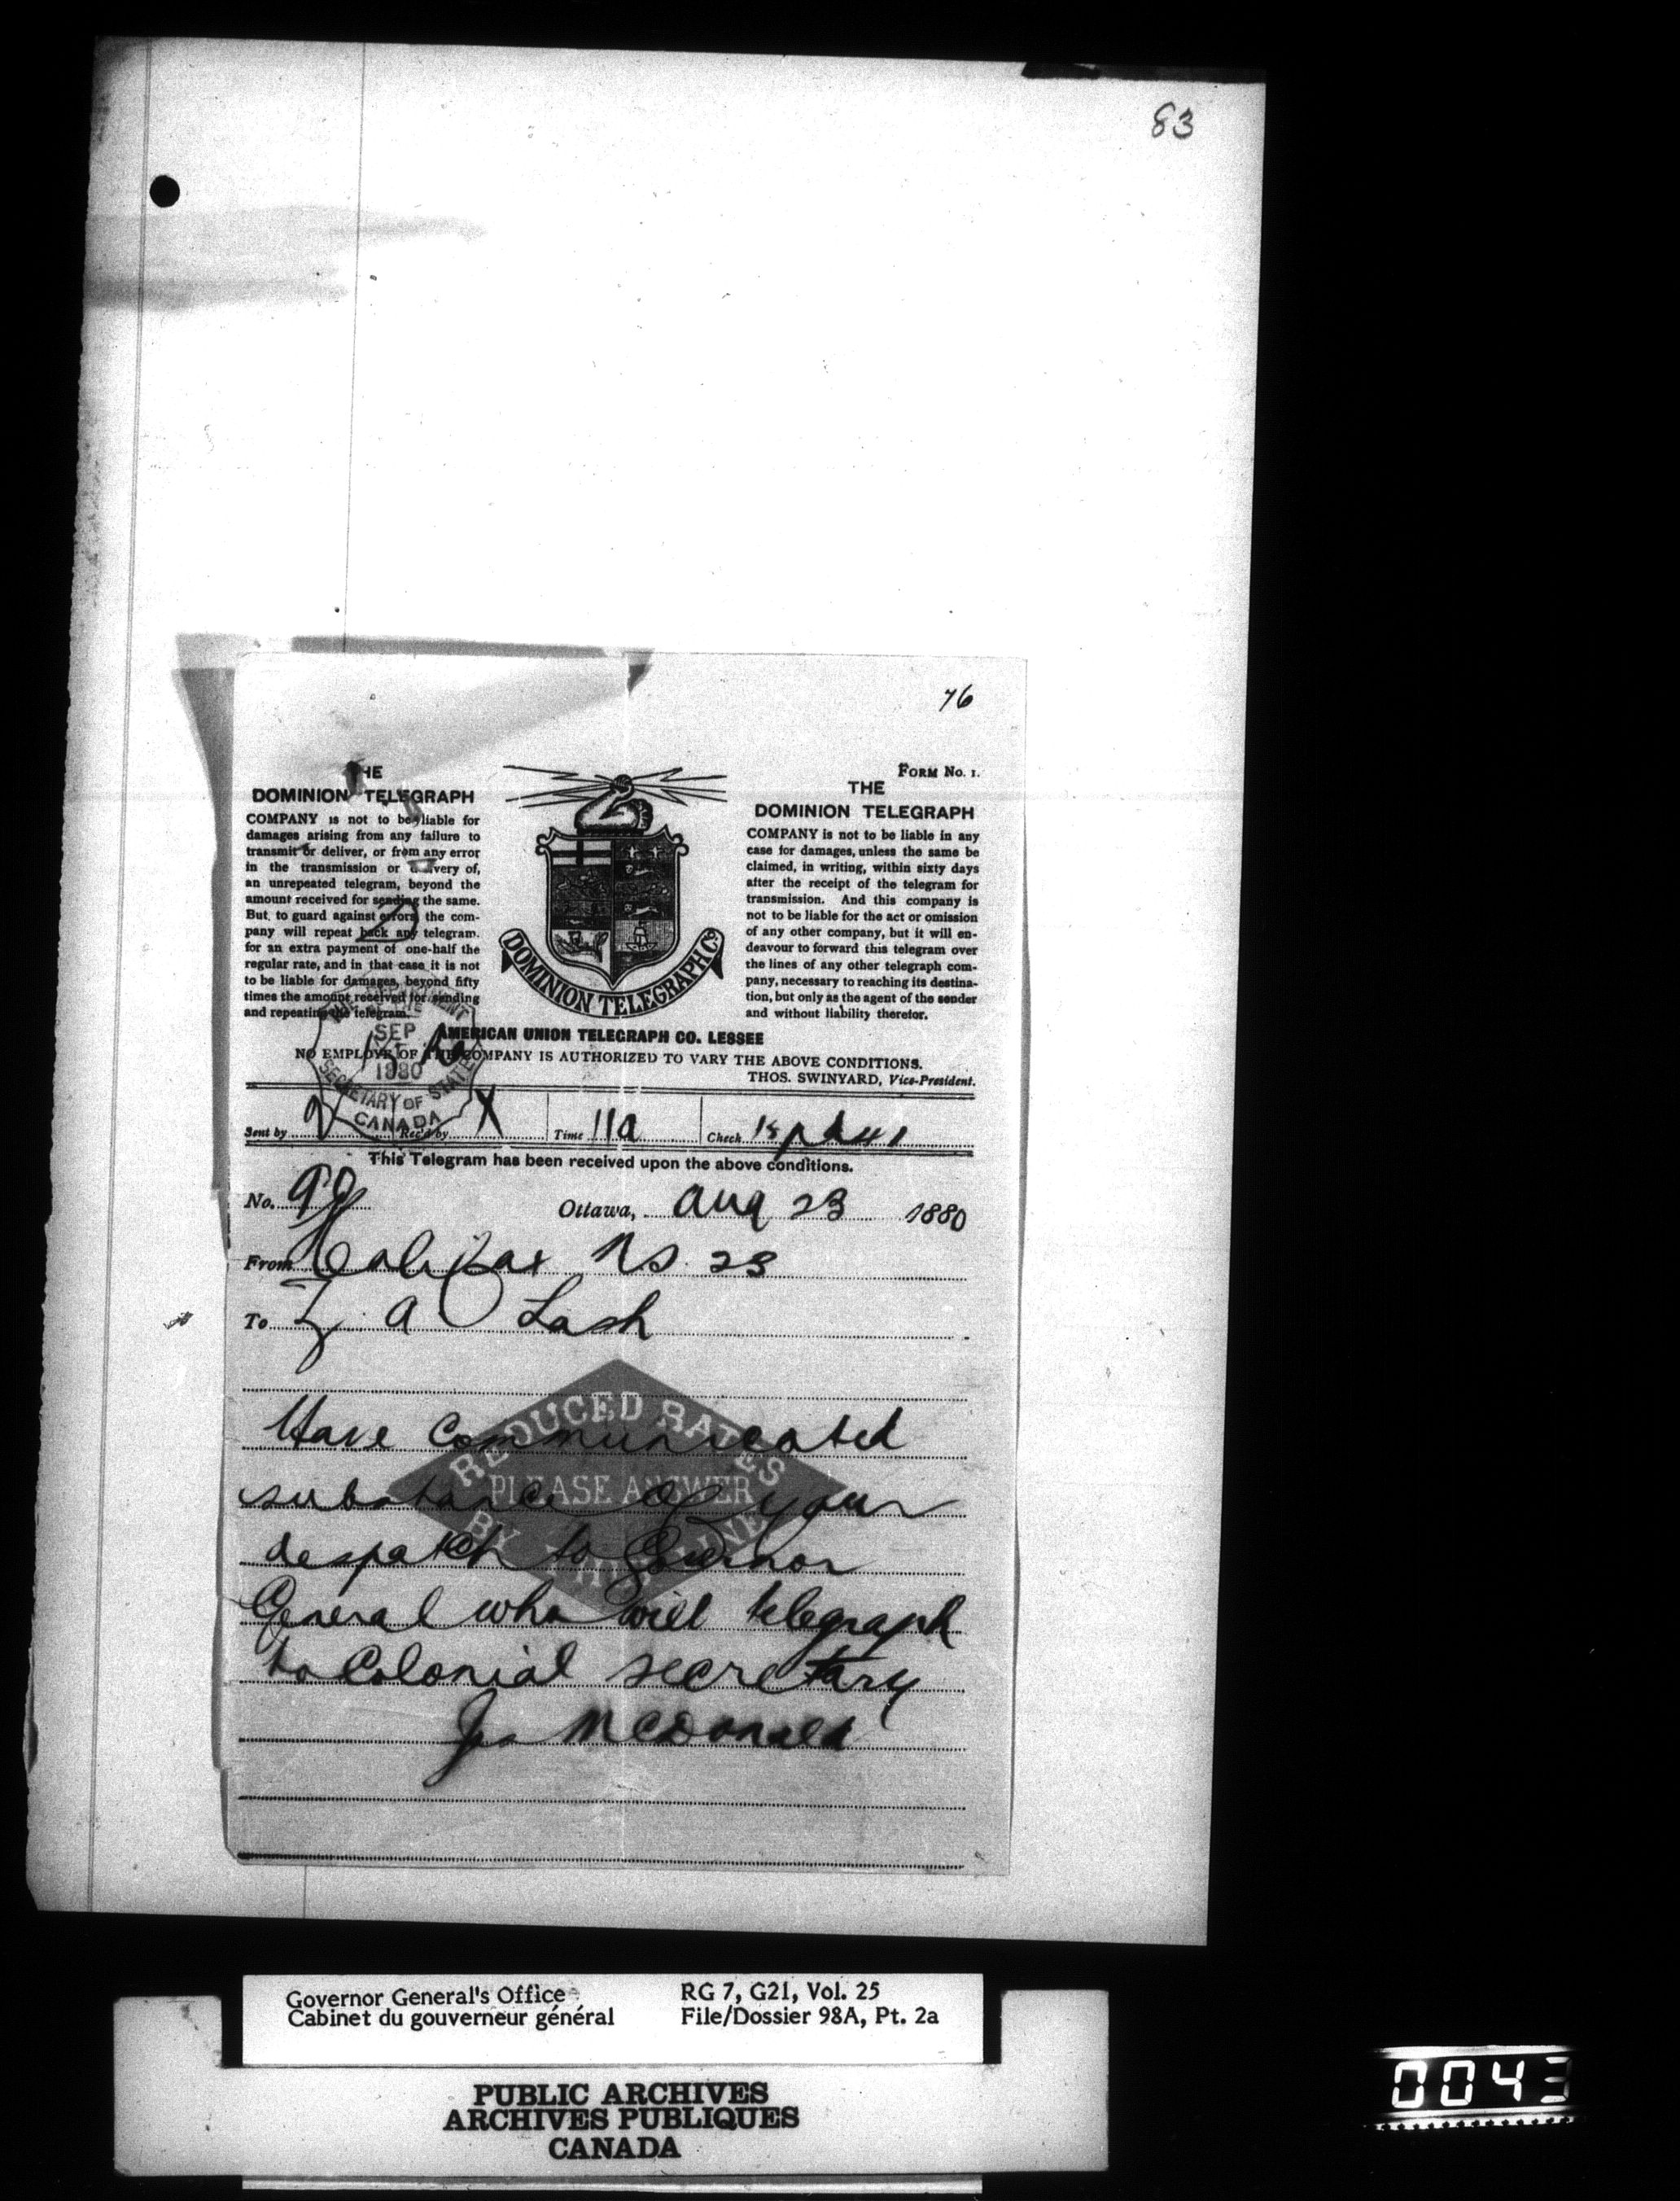 83
76
THE
DOMINION TELEGRAPH
COMPANY is not to be liable for
damages arising from any failure to
transmit or deliver, or from any error
in the transmission or delivery of,
an unrepeated telegram, beyond the
amount received for sending the same.
But, to guard against errors, the com-
pany will repeat back any telegram.
for an extra payment of one-half the
regular rate, and in that case it is not
to be liable for damages, beyond fifty
times the amount received for sending
and repeating the telegram.
DOMINION TELEGRAPH Co.
FORM No. 1.
THE
DOMINION TELEGRAPH
COMPANY is not to be liable in any
case for damages, unless the same be
claimed, in writing, within sixty days
after the receipt of the telegram for
transmission. And this company is
not to be liable for the act or omission
of any other company, but it will en-
deavour to forward this telegram over
the lines of any other telegraph com-
pany, necessary to reaching its destina-
tion, but only as the agent of the sender
and without liability therefor.
AMERICAN UNION TELEGRAPH CO. LESSEE
NO EMPLOYE OF THE COMPANY IS AUTHORIZED TO VARY THE ABOVE CONDITIONS.
THOS. SWINYARD, Vice-President.
SEP
1880
SECRETARY OF STATE
CANADA
Sent by Rec'd by X Time 11a Check
This Telegram has been received upon the above conditions.
No. Ottawa, Aug 23 1880
From Halifax NS 23
To Z A Lash
REDUCED RATES
PLEASE ANSWER
BY THIS LINE
Have communicated
substance of your
despatch to Governor
General who will telegraph
to Colonial secretary
Jas McDonald
Governor General's Office RG 7, G21, Vol. 25
Cabinet du gouverneur général File/Dossier 98A, Pt. 2a
PUBLIC ARCHIVES
ARCHIVES PUBLIQUES
CANADA
0043